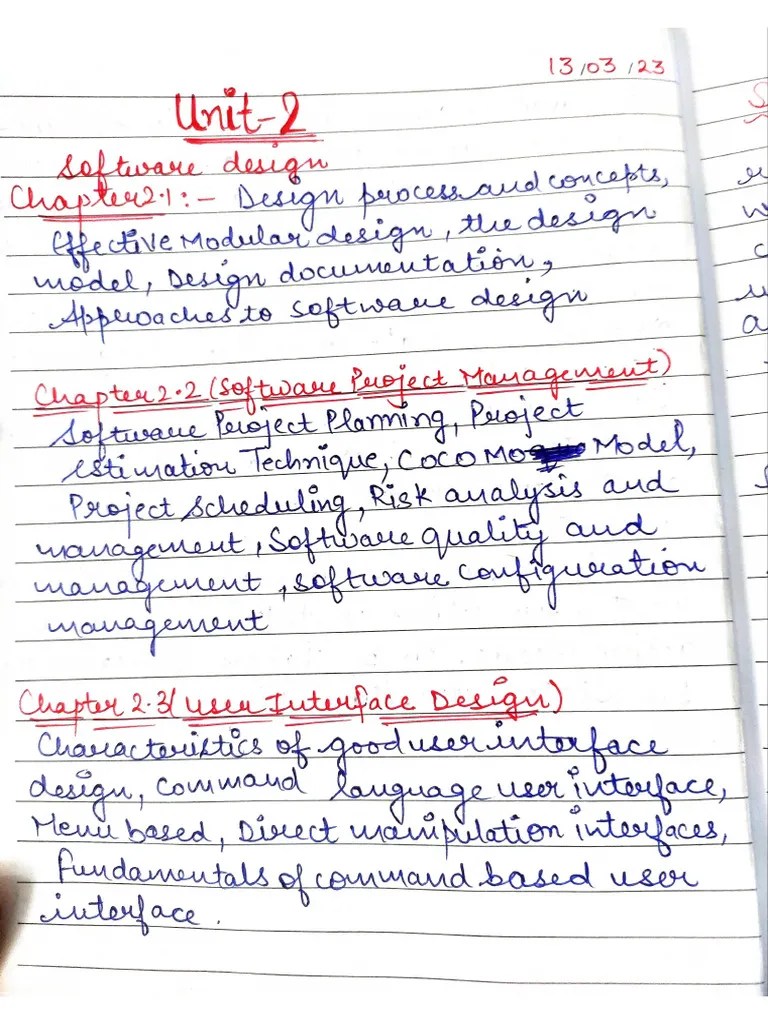 13/03/23
Unit-2
Software design
Chapter2.1:- Design process and concepts,
Effective Modular design, the design
model, Design documentation,
Approaches to software design
Chapter2.2 (Software Project Management)
Software Project Planning, Project
estimation Technique, COCOMO Model,
Project scheduling, Risk analysis and
management, Software quality and
management, software configuration
management
Chapter 2.3(User Interface Design)
Characteristics of good user interface
design, command language user interface,
Menu based, Direct manipulation interfaces,
fundamentals of command based user
interface.